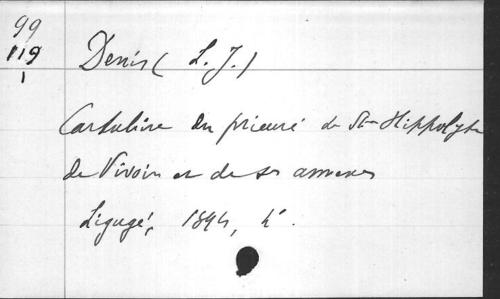 99
119
1
Denis ( L. J. )
Cartulaire du prieuré de St Hippolyte
de Vivoin et de ses annexes
Ligugé, 1894, 4°.